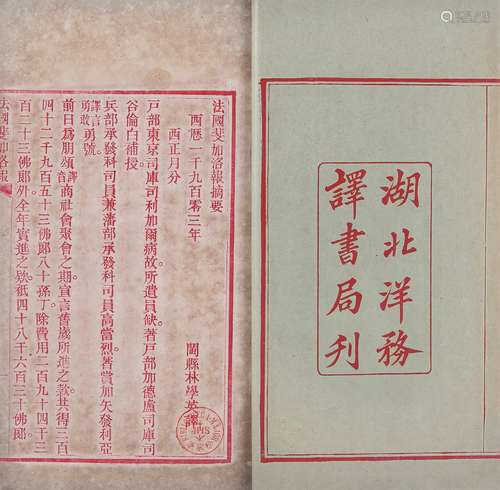 湖北洋務
譯書局刊
法國斐加洛報摘要
西曆一千九百零三年
西正月分
閩縣林學英譯
戶部東京司庫司利加爾病故。所遺員缺。著戶部加德盧司庫司
谷倫白補授。
兵部承發科司員兼潘部承發科司員高當烈。著賞加矢發利亞
譯言勇敢勇號。
前日為朋頌譯音商社會聚會之期。宣言舊歲所進之款。共得三百
四十二千九百五十三佛郎八十孫丁。除費用二百九十四千三
百二十三佛郎外。全年實進之欵。祇四十八千六百三十佛郎。
法國斐加洛報